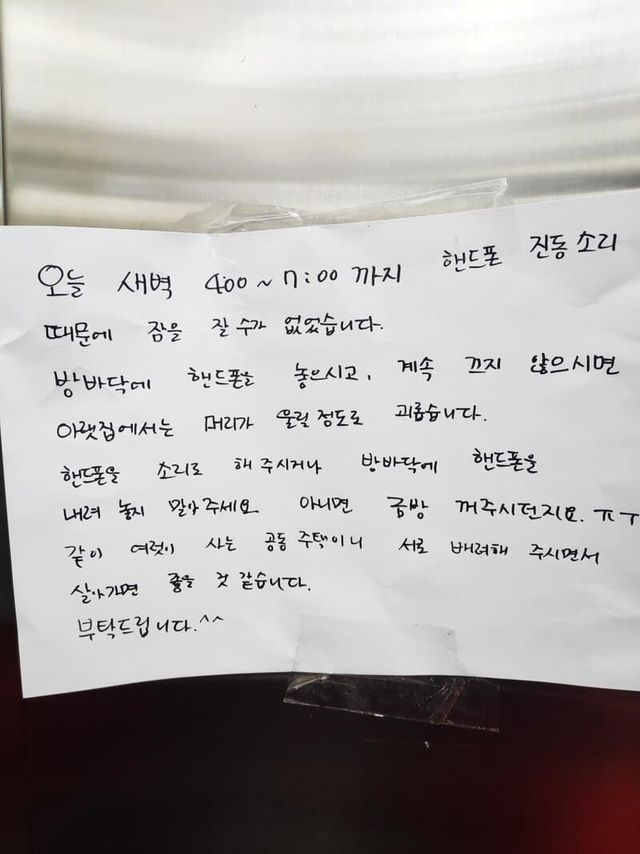 오늘 새벽 4:00 ~ 7:00 까지 핸드폰 진동 소리
때문에 잠을 잘 수가 없었습니다.
방바닥에 핸드폰을 놓으시고, 계속 끄지 않으시면
아랫집에서는 머리가 울릴 정도로 괴롭습니다.
핸드폰을 소리로 해 주시거나 방바닥에 핸드폰을
내려 놓지 말아주세요. 아니면 금방 꺼주시던지요. ㅠㅜ
같이 여럿이 사는 공동 주택이니 서로 배려해 주시면서
살아가면 좋을 것 같습니다.
부탁드립니다.^^